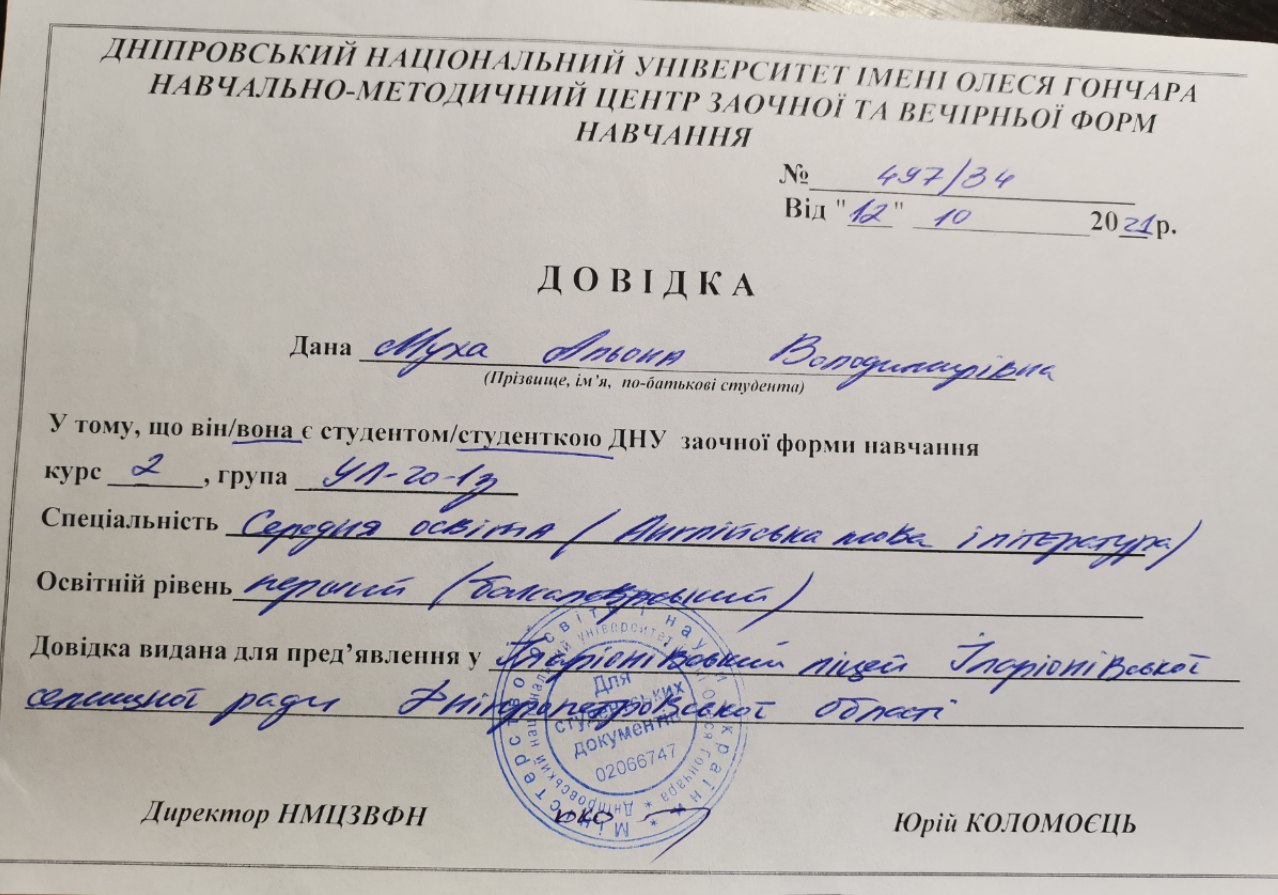 ДНІПРОВСЬКИЙ НАЦІОНАЛЬНИЙ УНІВЕРСИТЕТ ІМЕНІ ОЛЕСЯ ГОНЧАРА
НАВЧАЛЬНО-МЕТОДИЧНИЙ ЦЕНТР ЗАОЧНОЇ ТА ВЕЧІРНЬОЇ ФОРМ
НАВЧАННЯ
№ 497/34
Від "12" 10 2021 р.
ДОВІДКА
Дана Муха Альона Володимирівна
(Прізвище, ім’я, по-батькові студента)
У тому, що він/вона є студентом/студенткою ДНУ заочної форми навчання
курс 2, група УЛ-20-1з
Спеціальність Середня освіта (Англійська мова і література)
Освітній рівень перший (бакалаврський)
Довідка видана для пред’явлення у Іларіонівський ліцей Іларіонівської
селищної ради Дніпропетровської області
Міністерство освіти і науки України * Дніпровський національний університет імені Олеся Гончара *
Для
студентських
документів
02066747
Директор НМЦЗВФН
Юрій КОЛОМОЄЦЬ